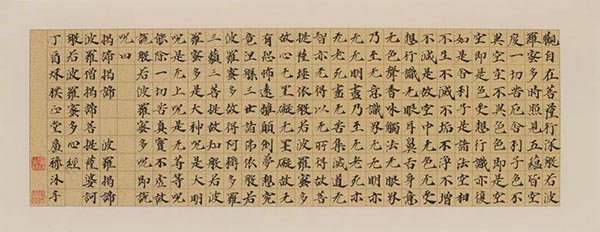 觀自在菩薩行深般若波
羅蜜多時照見五蘊皆空
度一切苦厄舍利子色不
異空空不異色色即是空
空即是色受想行識亦復
如是舍利子是諸法空相
不生不滅不垢不淨不增
不減是故空中无色无受
想行識无眼耳鼻舌身意
无色聲香味觸法无眼界
乃至无意識界无无明亦
无无明盡乃至无老死亦
无老死盡无苦集滅道无
智亦无得以无所得故菩
提薩埵依般若波羅蜜多
故心无罣礙无罣礙故无
有恐怖遠離顛倒夢想究
竟涅槃三世諸佛依般若
波羅蜜多故得阿耨多羅
三藐三菩提故知般若波
羅蜜多是大神呪是大明
呪是无上呪是无等等呪
能除一切苦真實不虛故
說般若波羅蜜多呪即說
呪曰
揭諦揭諦 波羅揭諦
波羅僧揭諦菩提薩婆訶
般若波羅蜜多心經
丁酉秋